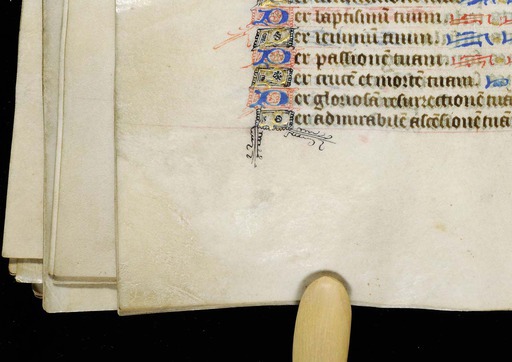 Per baptismū tuum
Per ieiunium tuum
Per passionē tuam
Per crucē et mortē tuam
Per gloriosā resurrectionē tuā
Per admirabilē ascēsionē tuā